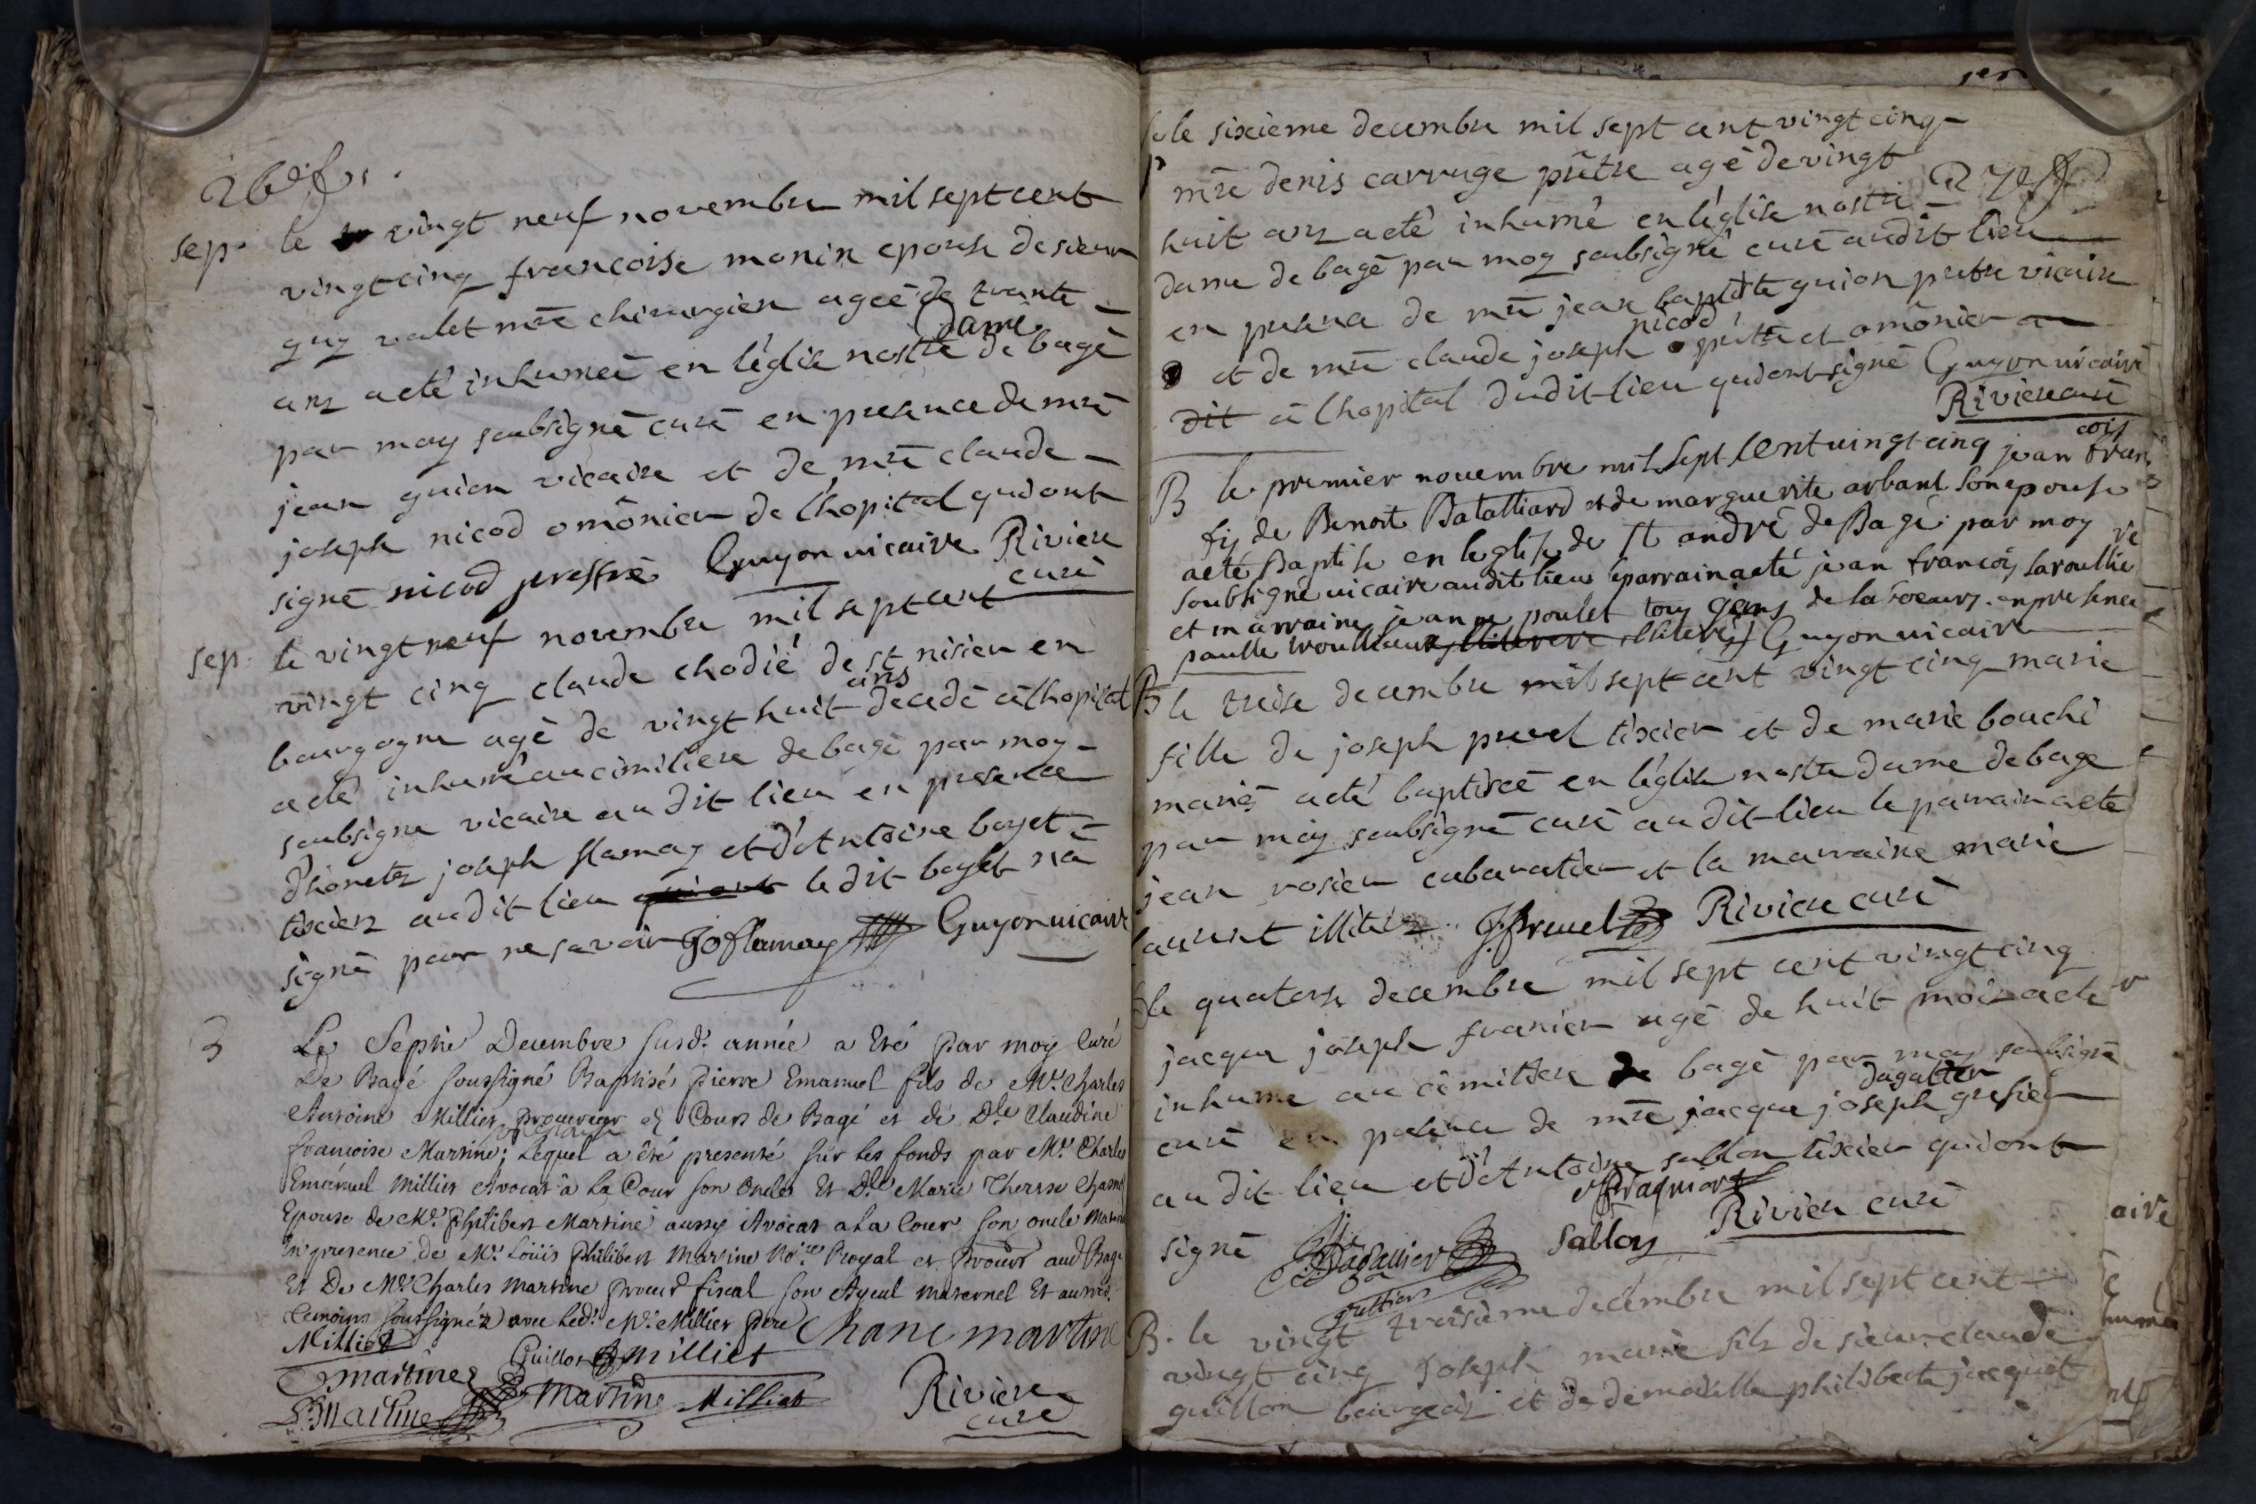 sep. le vingt neuf novembre mil sept cent
vingt cinq francoise monin epouse de sieur
guy valet mre chirurgien ageé de trante
ans a eté inhumeé en l'eglise nostre Dame de bagé
par moy soubsigné curé en presence de mre
jean guion vicaire et de mre claude
joseph nicod omônier de lhopital qui ont
signé nicod prestre Guyon vicaire Riviere
curé
sep. le vingt neuf novembre mil sept cent
vingt cinq claude chodié de st nisier en
bourgogne agé de vingt huit ans decedé a lhopital
a eté inhumé au cimitiere de bagé par moy
soubsigne vicaire au dit lieu en presence
d'honetes joseph flamay et d'Antoine boyet
tixiers au dit lieu qui ont le dit boyet n'a
signé pour ne savoir Jo flamay Guyon vicaire
Le Sepme Decembre susd. année a Eté par moy Curé
De Bagé soussigné Baptisé pierre Emanuel fils de Mr. Charles
Antoine Milliet procureur es Cours de Bagé et de Dle Claudine
francoise Martine; Lequel a été presenté sur les fonds par Mr. Charles
Emanuel Milliet Avocat a La Cour son Oncle Et Dle Marie Therese Chasne
Epouse de Mr. philibert Martine aussy Avocat a La Cour son oncle Matern
En presence de Mr Loüis philibert Martine No.re Royal et procur aud Bagé
Et De Mr Charles Martine procur fiscal son Ayeul maternel Et autres
temoins soussignéz avec Led. Mr. Milliet pere Chane martine
Milliet
martine Guillot Milliet
Martine Martine Milliet Riviere
curé
le sixieme decembre mil sept cent vingt cinq
mre denis carruge prêtre agé de vingt
huit ans a eté inhumé en l'église nostre
dame de bagé par moy soubsigné curé audit lieu
en presence de mre jean baptiste guion pretre vicaire
et de mre claude joseph nicod prêtre et omônier au
dit a lhopital dudit lieu qui ont signé Guyon vicaire
Riviere curé
B le premier novembre mil sept Cent vingt cinq jean fran
cois
fij de Benoit Batalliard et de marguerite arbant son epouse
a eté Baptisé en leglise de st andré de Bagé par moy
soubsigné vicaire audit lieu le parrain a eté jean francois laroullie
et marraine jeanne poulet tous gens de labeaurs. en presence
paulle Guyon vicaire
B le treise decembre mil sept cent vingt cinq marie
fille de joseph pruel tixier et de marie bouchi
mariés a eté baptiseé en l'église nostre dame de bagé
par moy soubsigné curé au dit lieu le parrain a eté
jean rosier cabaratier et la marraine marie
laurent illitérés J. pruel Riviere curé
le quatorse decembre mil sept cent vingt cinq
jacque joseph franier agé de huit mois a eté
inhumé au cimitiere de bagé par moy soubsigné
curé en presence de mre jacque joseph dagallier grefier
au dit lieu et d'Antoine sablon tixier qui ont
signé Dagallier Sablon Riviere curé
B. le vingt troisieme decembre mil sept cent
vingt cinq joseph marie fils de sieur claude
guillon bourgeois et de demoiselle philiberte jacquet